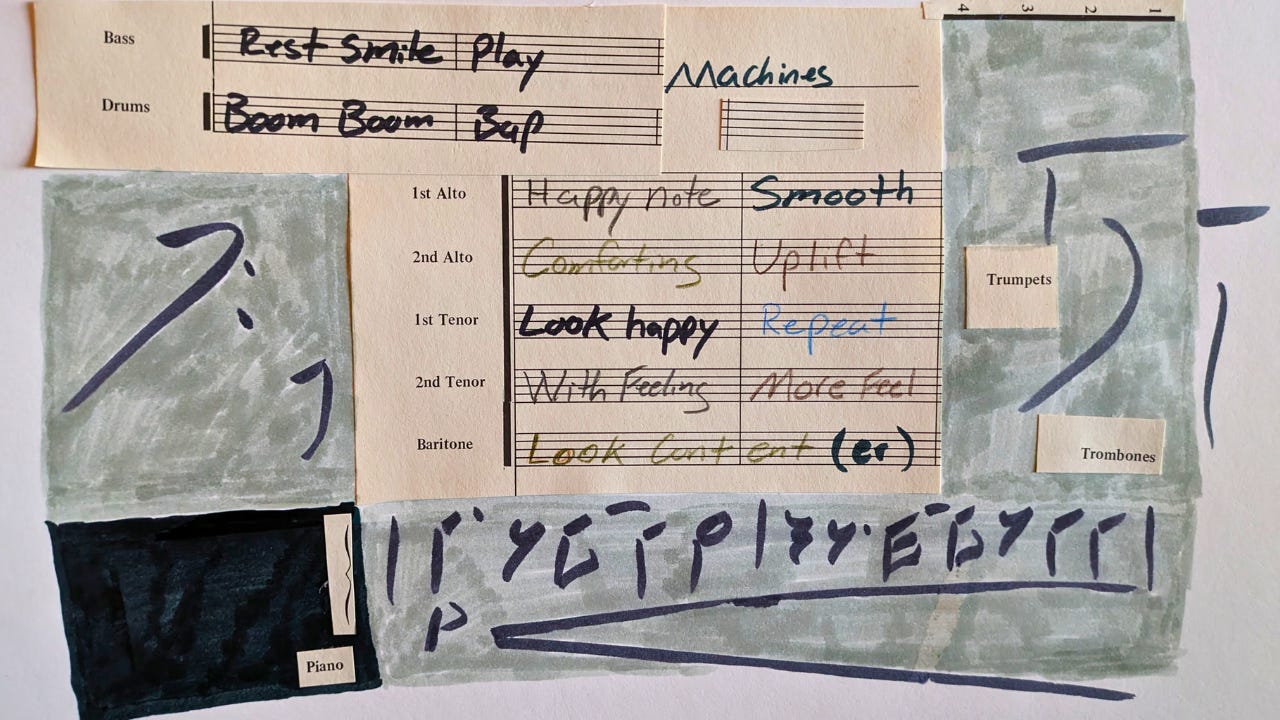 4 3 2 1
Bass Rest Smile Play
Machines
Drums Boom Boom Bap
1st Alto Happy note Smooth
2nd Alto Comforting Uplift
Trumpets
1st Tenor Look happy Repeat
2nd Tenor With Feeling More Feel
Baritone Look Content (er)
Trombones
P
Piano